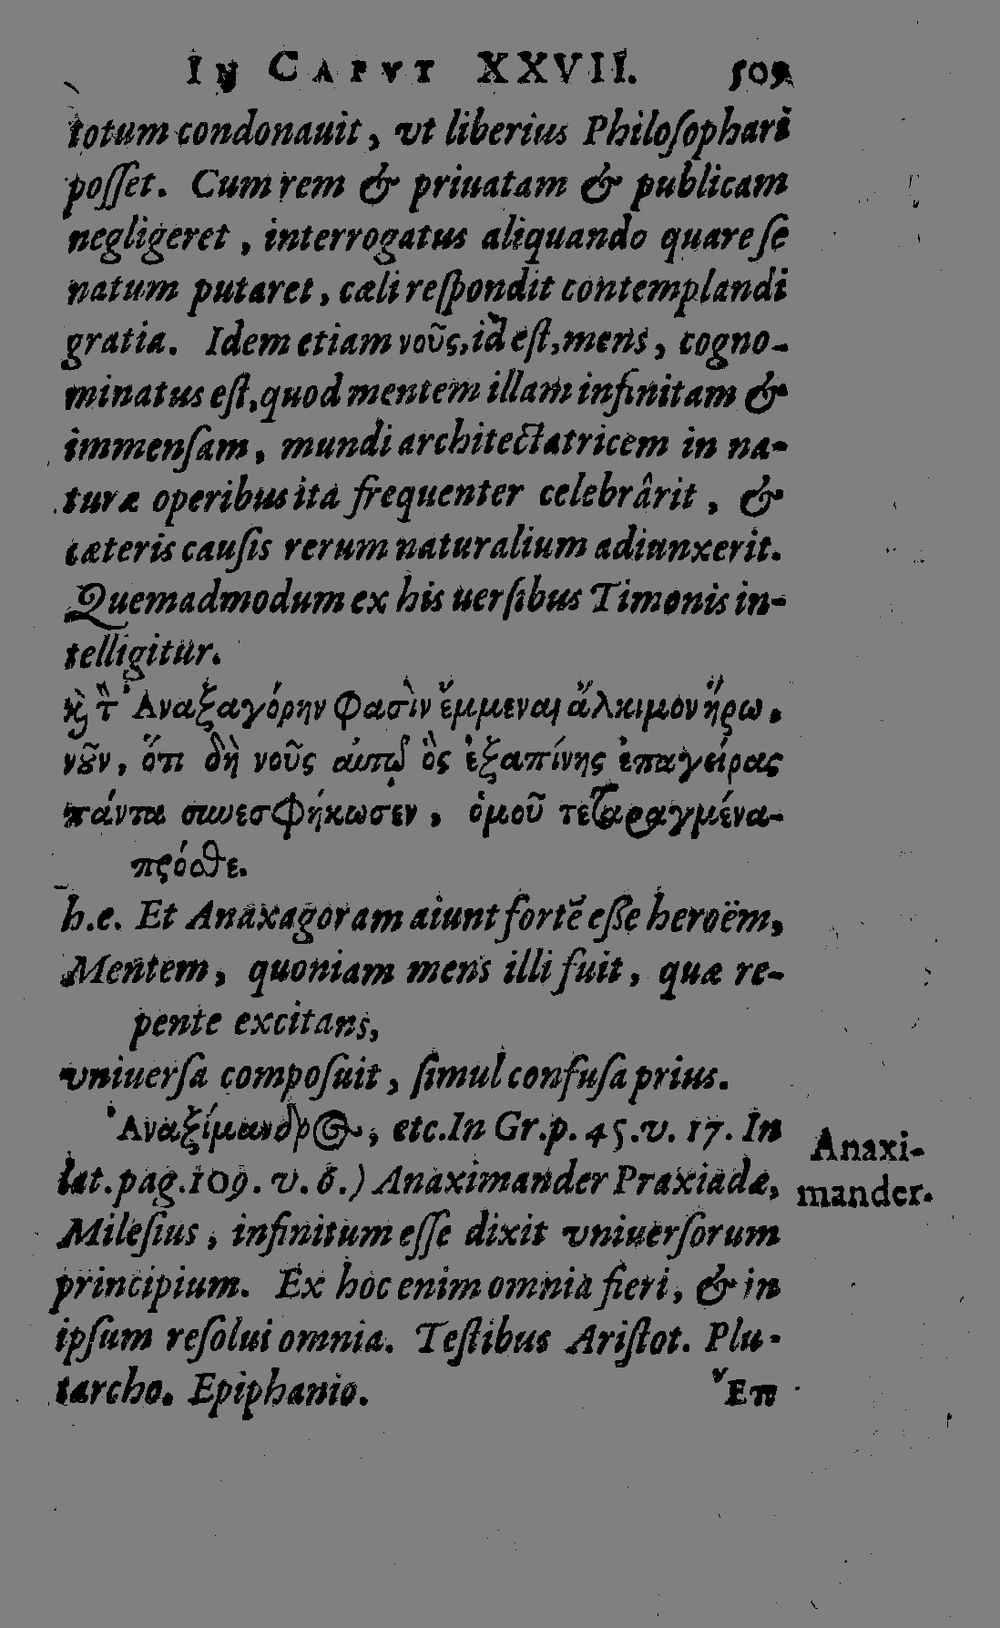 IN CAPVT XXVII. 509
totum condonauit, vt liberius Philoſophari
poſſet. Cum rem & priuatam & publicam
negligeret, interrogatus aliquando quare ſe
natum putaret, cæli reſpondit contemplandi
gratia. Idem etiam νοῦς, id eſt, mens, cogno-
minatus eſt, quod mentem illam infinitam &
immenſam, mundi architectatricem in na-
turæ operibus ita frequenter celebrârit, &
cæteris cauſis rerum naturalium adiunxerit.
Quemadmodum ex his uerſibus Timonis in-
telligitur.
ϗ̀ τ̀ Ἀναξαγόρην φασὶν ἔμμεναι ἄλκιμον ἥρω.
νοῦν, ὅτι δὴ νοῦς αὐτῷ ὃς ἐξαπίνης ἐπαγείρας
πάντα συνεσφήκωσεν, ὁμοῦ τεταραγμένα-
πρόσθε.
h.e. Et Anaxagoram aiunt fortẽ eſſe heroëm,
Mentem, quoniam mens illi fuit, quæ re-
pente excitans,
vniuerſa compoſuit, ſimul confuſa prius.
Ἀναξίμανδρος, etc. In Gr. p. 45. v. 17. In
lat. pag. 109. v. 6.) Anaximander Praxiadæ,
Mileſius, infinitum eſſe dixit vniuerſorum
principium. Ex hoc enim omnia fieri, & in
ipſum reſolui omnia. Teſtibus Ariſtot. Plu-
tarcho. Epiphanio.
Ἔπ
Anaxi-
mander.